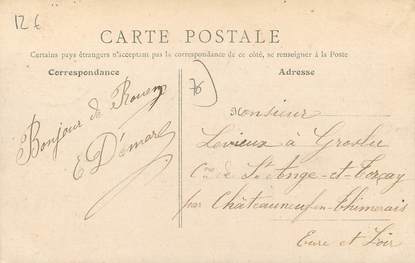 12 €
CARTE POSTALE
Certains pays étrangers n'acceptant pas la correspondance de ce côté, se renseigner à la Poste
Correspondance
Adresse
76
Bonjour de Rouen
E Démare
Monsieur
Levieux à Groslu
Cne de St Ange-et-Torçay
par Châteauneuf-en-Thimerais
Eure et Loir